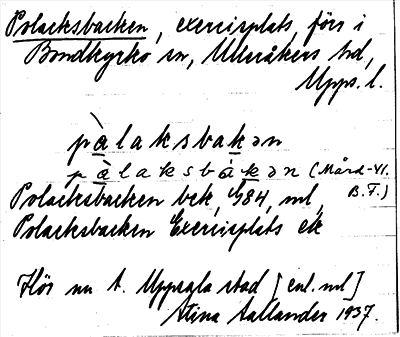 Polacksbacken, exercisplats, förr i
Bondkyrko sn, Ulleråkers hd,
Upps. l.
pàlaksbakən
pàlaksbákən (Mård-Vl.
B. F.)
Polacksbacken bek, G84, ml,
Polacksbacken Exercisplats ek
Hör nu t. Uppsala stad [enl. ml]
Stina Aallander 1937.